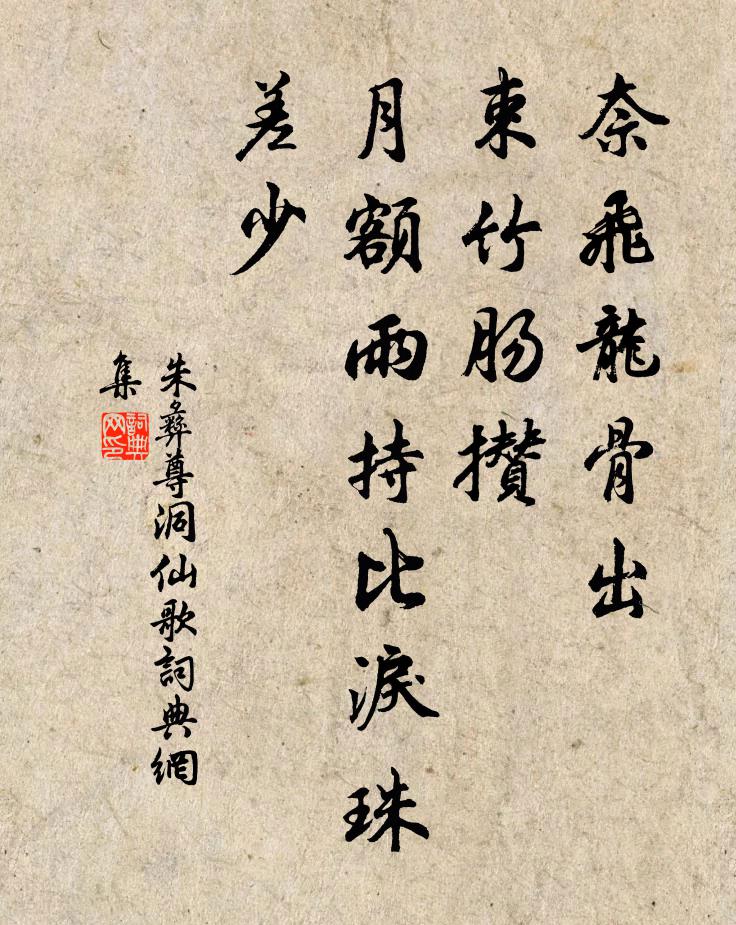 奈飛龍骨出
束竹肠攢
月額雨持比淚珠
差少
朱彝尊洞仙歌詞典網
集
詞典
网印